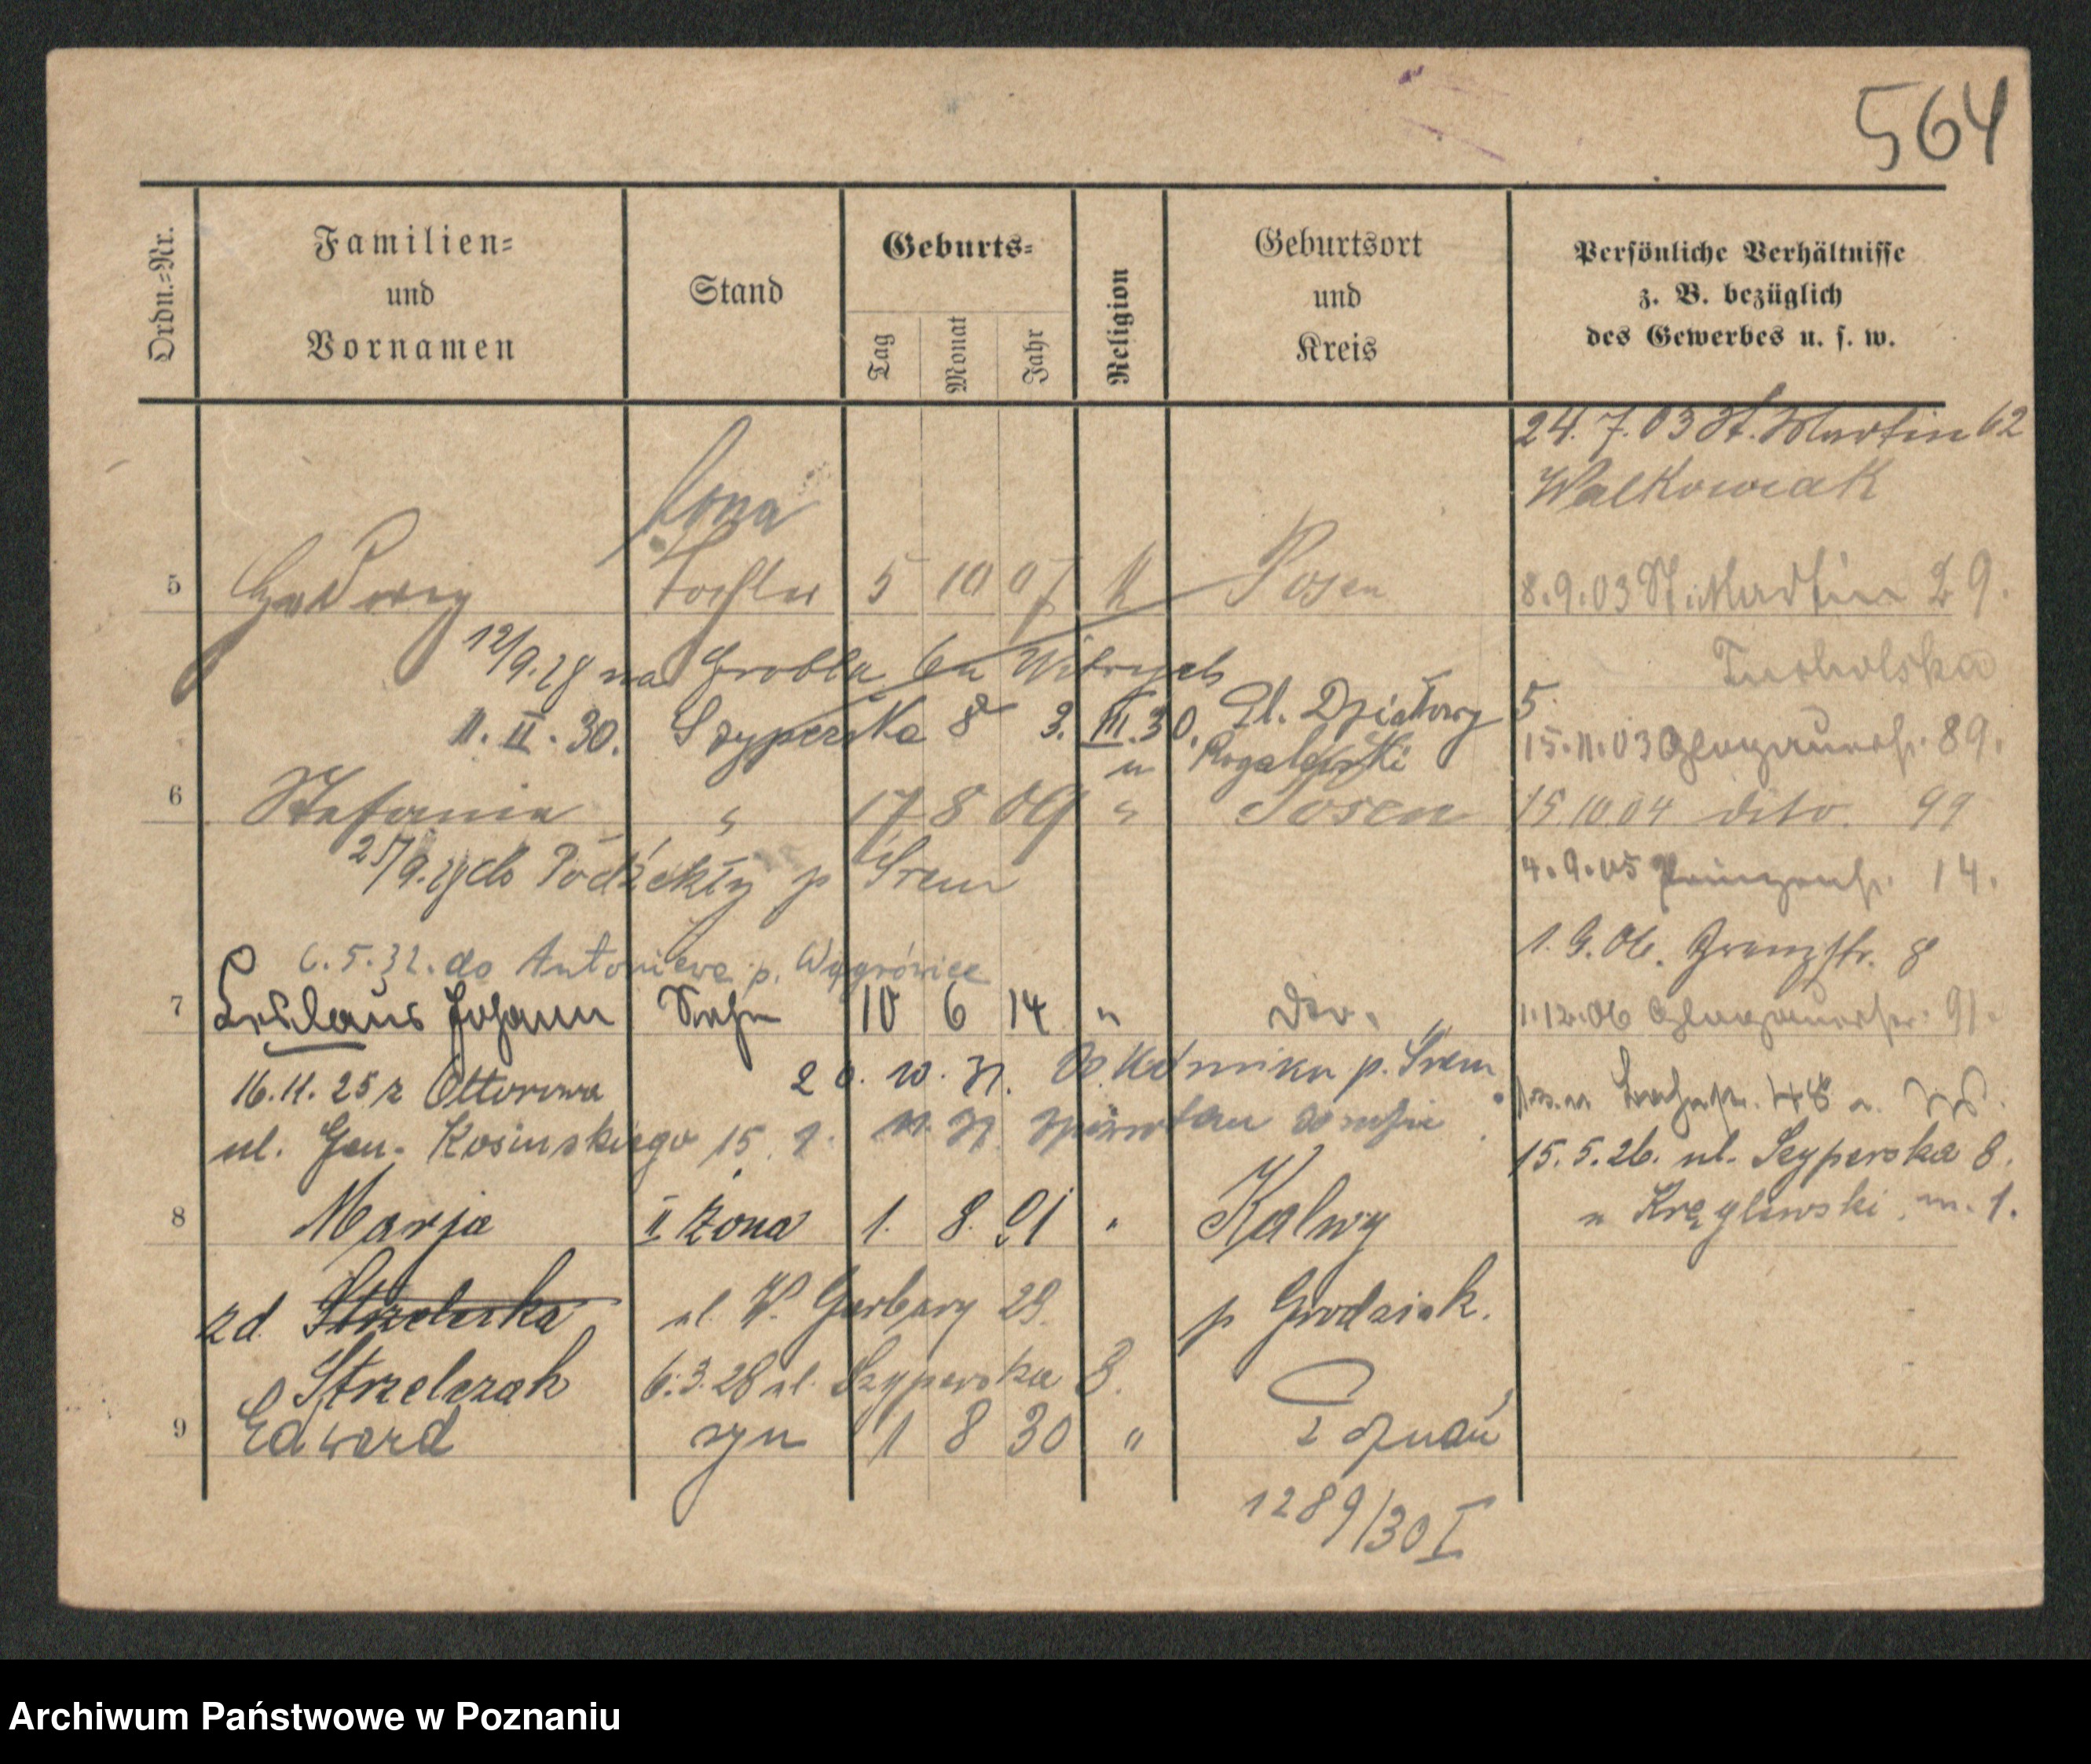 564
Ordn.-Nr.
Familien- und Vornamen
Stand
Geburts-
Tag
Monat
Jahr
Religion
Geburtsort und Kreis
Persönliche Verhältnisse z. B. bezüglich des Gewerbes u. s. w.
24. 7. 03 St. Martin 62
Walkowiak
5 Hedwig Tochter 5 10 07 K Posen
8. 9. 03 St. Martin 29.
12/9. 28 na Grobla 6a
Tucholska
11. II. 30. Szyperska 8 3. III. 30. Pl. Działowy 5
u Rogalewski
15. 11. 03 Glogauerstr. 89.
6 Stefania " 17 8 09 " Posen
15 10 04 dito. 99
25/9. do p Śrem
4. 9. 05 Prinzenstr. 14.
6. 5. 32. do Antoniewa p. Wągrówiec
1. 9. 06. Grenzstr. 8
7 Johann Sohn 10 6 14 " do.
1. 12. 06 Glogauerstr. 91.
16. 11. 25 z Ottorowa
20. 10. 31. p. Śrem
ul. Gen. Kosinskiego 15.
15. 5. 26. ul. Szyperska 8.
u Kręglewski m. 1.
8 Marja II żona 1. 8. 91 " Kalwy
zd. Strzelczak ul. W. Garbary 29. p Grodzisk.
6. 3. 28 ul. Szyperska 8.
9 Edward syn 1 8 30 " Poznań
1289/30 I
Archiwum Państwowe w Poznaniu